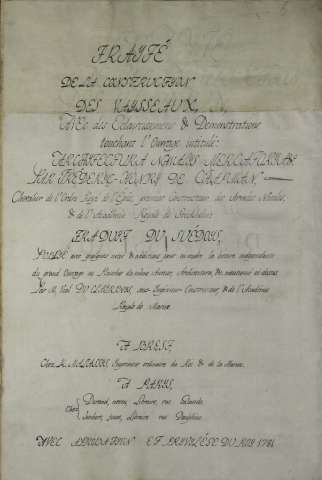 TRAITÉ
DE LA CONSTRUCTION
DES VAISSEAUX,
AVEC des Eclaircissemens & Démonstrations
touchant l'Ouvrage intitulé:
ARCHITECTURA NAVALIS MERCATORIA &c
PAR FRÉDERIC-HENRI DE CHAPMAN,
Chevalier de l'Ordre Royal de l'Epée, premier Constructeur des Armées Navales,
& de l'Académie Royale de Stockholm
TRADUIT DU SUÉDOIS,
PUBLIÉ avec quelques notes & additions pour en rendre la lecture indépendante
du grand Ouvrage en Planches du même Auteur, Architectura, &c. mentionné ci-dessus
Par M. Vial DU CLAIRBOIS, sous-Ingénieur-Constructeur, & de l'Académie
Royale de Marine
A BREST,
Chez R. MALASSIS, Imprimeur ordinaire du Roi & de la Marine.
A PARIS,
Chez Durand, neveu, Libraire, rue Galande.
Jombert, jeune, Libraire rue Dauphine.
AVEC APPROBATION ET PRIVILÉGE DU ROI 1781